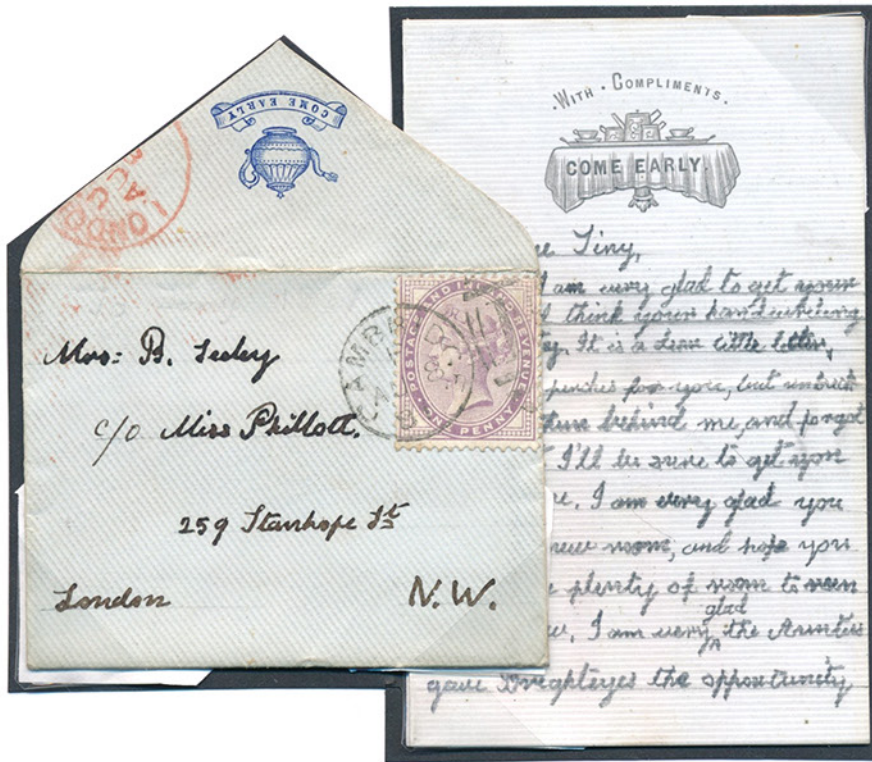 COME EARLY
LONDON
POSTAGE AND INLAND REVENUE
ONE PENNY
CAMBR
Mrs: B. Seeley
c/o Miss Phillott.
259 Stanhope St
London N.W.
WITH · COMPLIMENTS.
COME EARLY.
Tiny,
am very glad to get your
I think your handwriting
It is a dear little letter,
for you, but
behind me, and forgot
I'll be sure to get you
I am very glad you
new room, and hope you
plenty of room to
I am very glad the Aunties
gave Brighteyes the opportunity